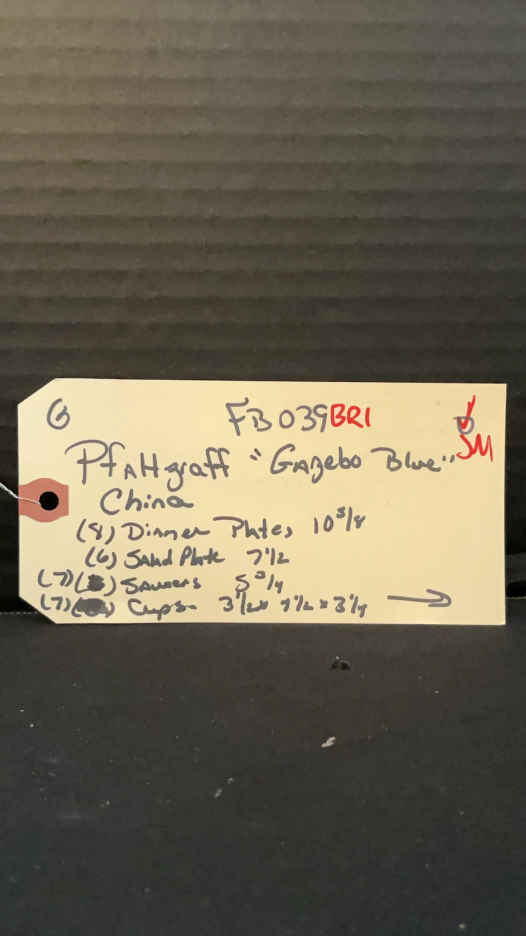 G FB039BRI
SM
PfAHgraff "GAzebo Blue"
China
(8) Dinner Plates 10 3/8
(6) SAlad Plate 7 1/2
(7) Saucers 5 3/4
(7) Cups 3 1/2 x 4 1/2 x 3 1/4 →